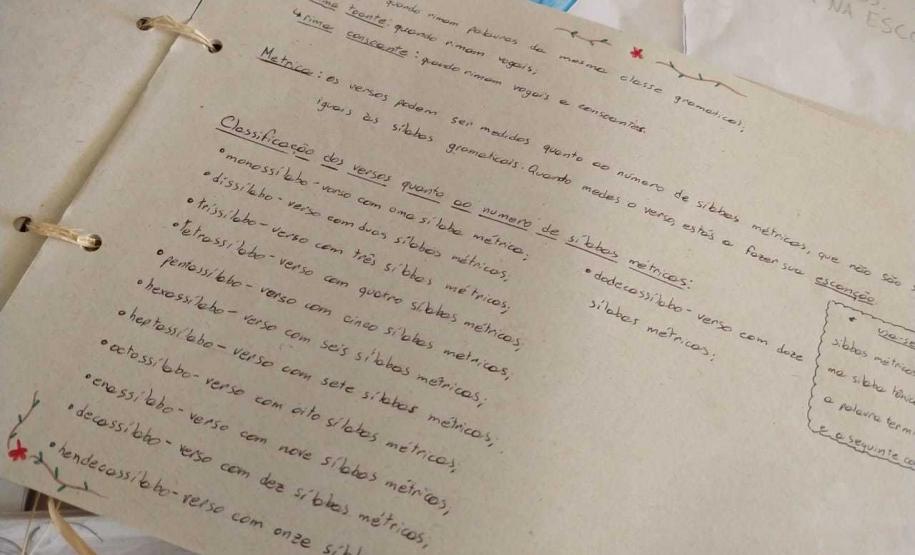 quando rimam palavras da mesma classe gramatical;
toante: quando rimam vogais;
↳ rima consoante: quando rimam vogais e consoantes.
Métrica: os versos podem ser medidos quanto ao número de sílabas métricas, que não são
iguais às sílabas gramaticais. Quando medes o verso, estás a fazer sua escansão.
Classificação dos versos quanto ao numero de sílabas métricas:
• monossílabo - verso com uma sílaba métrica;
• dissílabo - verso com duas sílabas métricas;
• trissílabo - verso com três sílabas métricas;
• tetrassílabo - verso com quatro sílabas métricas;
• pentassílabo - verso com cinco sílabas métricas;
• hexassílabo - verso com seis sílabas métricas;
• heptassílabo - verso com sete sílabas métricas;
• octossílabo - verso com oito sílabas métricas;
• eneassílabo - verso com nove sílabas métricas;
• decassílabo - verso com dez sílabas métricas;
• hendecassílabo - verso com onze
• dodecassílabo - verso com doze
sílabas métricas;
sílabas métricas
sílaba tônica
a palavra
e a seguinte
NA